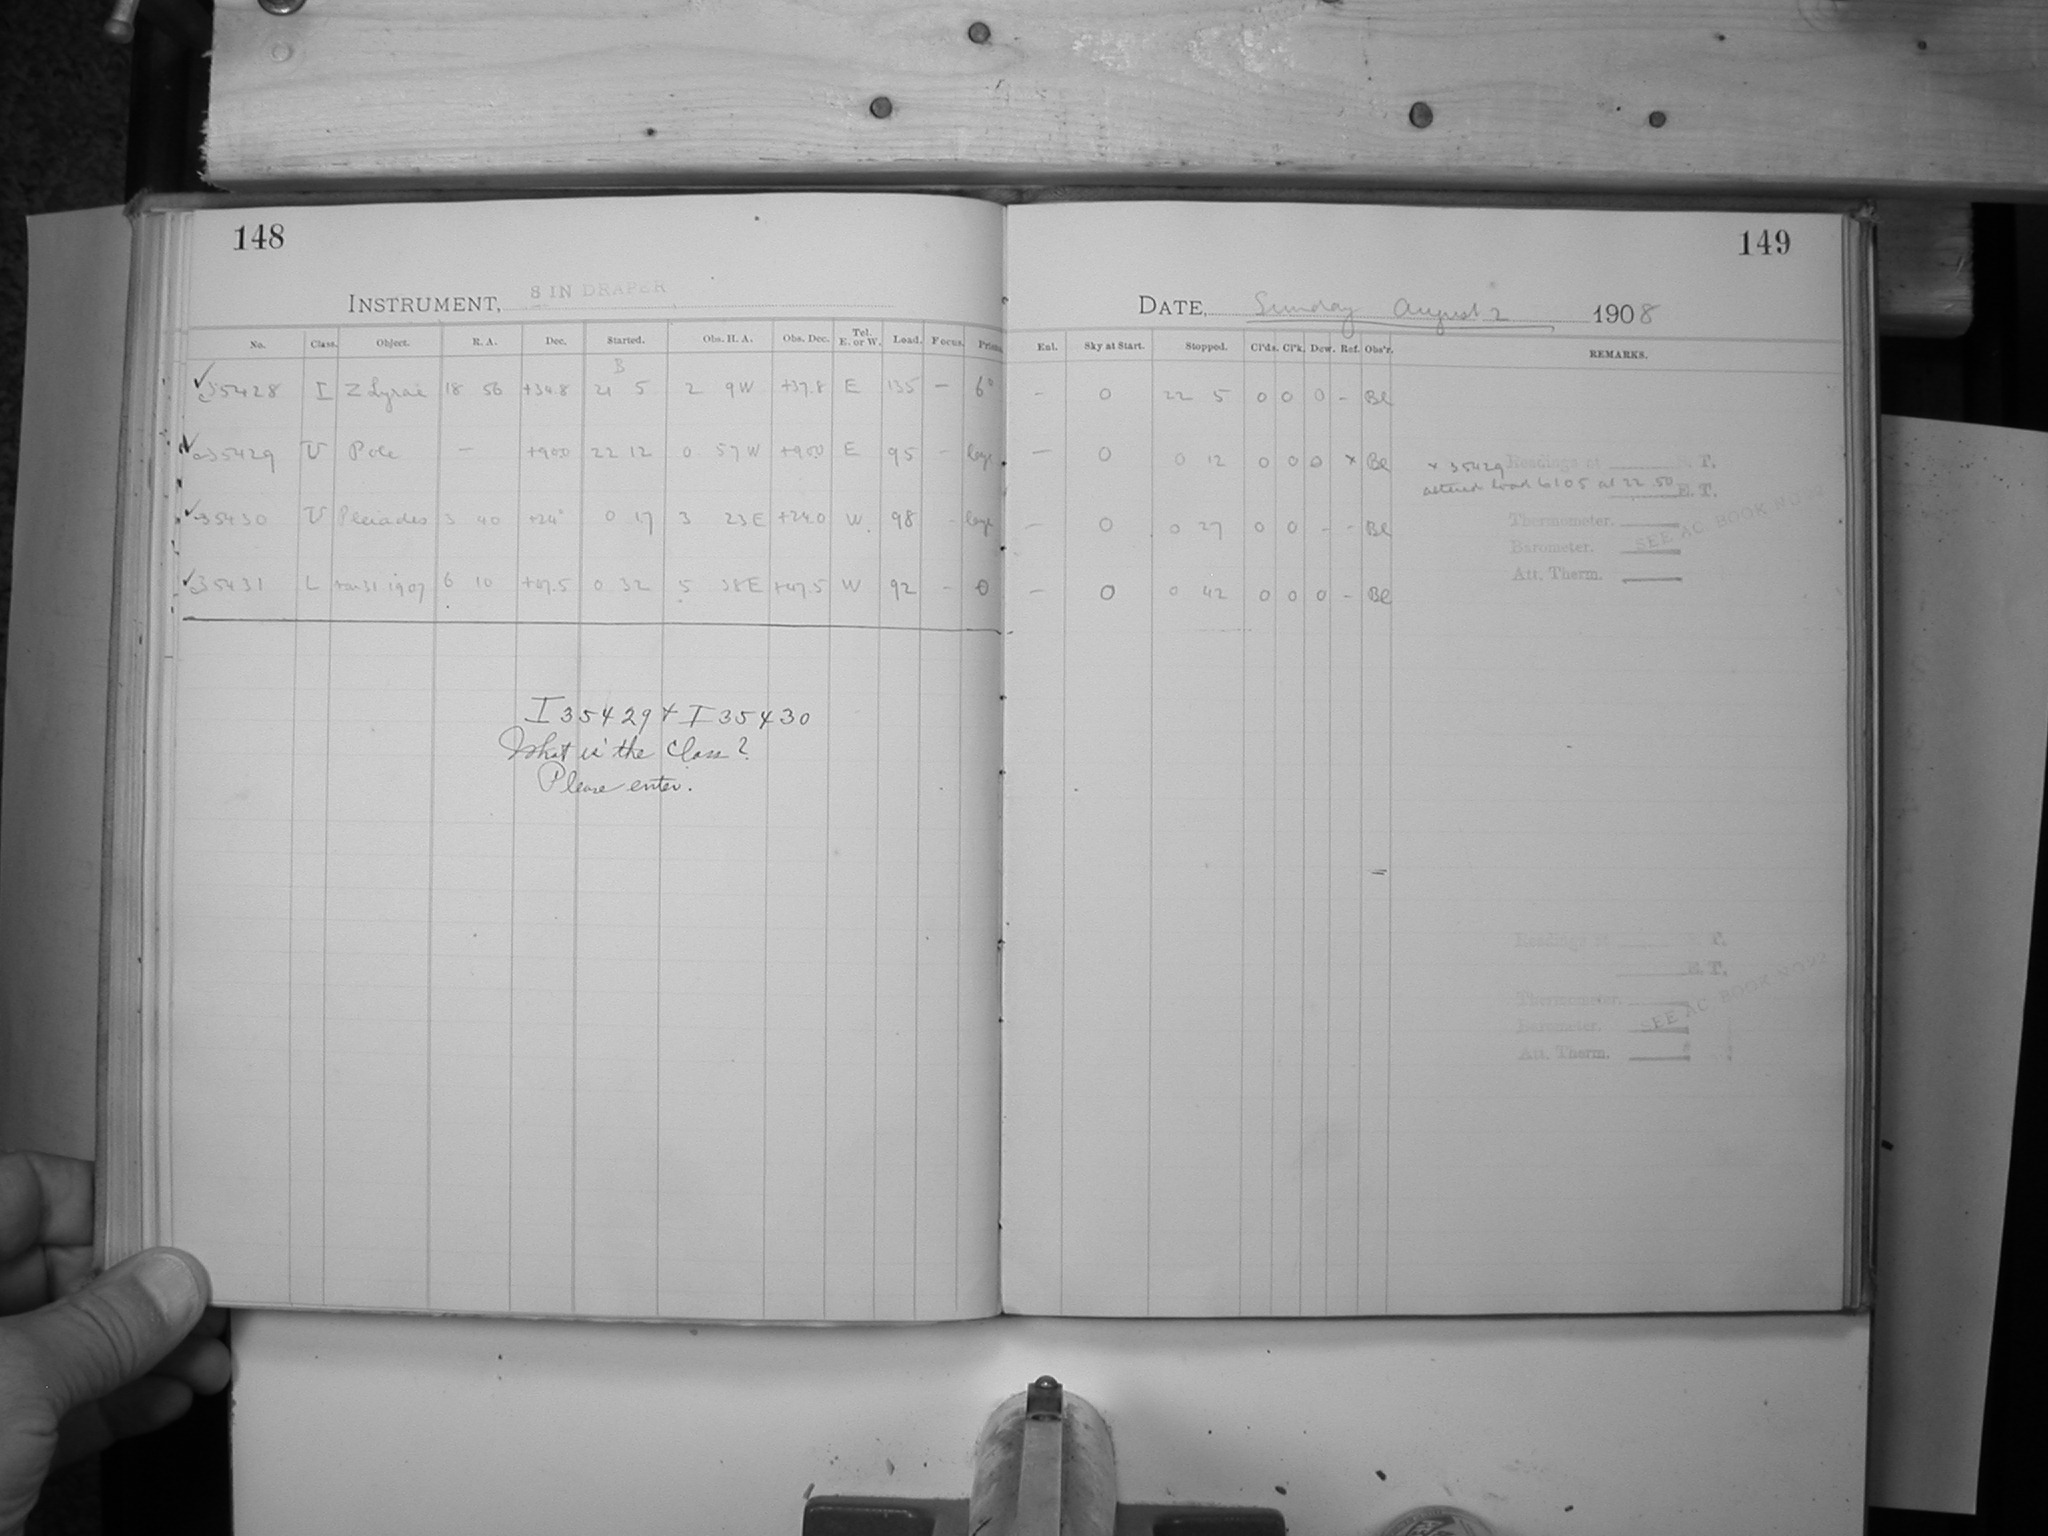 148
INSTRUMENT, 8 IN DRAPER
No. Class. Object. R. A. Dec. Started. Obs. H. A. Obs. Dec. Tel. E. or W. Load. Focus. Prism.
B
✓ 35428 I Z Lyrae 18 56 +34.8 21 5 2 9 W +37.8 E 135 – 6°
✓ 35429 U Pole – +90.0 22 12 0 57 W +90.0 E 95 – large
✓ 35430 U Pleiades 3 40 +24° 0 17 3 23 E +24.0 W. 98 - large
✓ 35431 L 31 1907 6 10 +47.5 0 32 5 38 E +47.5 W 92 - 0
I 35429 + I 35430
What is the Class?
Please enter.
149
DATE, Sunday August 2 1908
Enl. Sky at Start. Stopped. Cl'ds. Cl'k. Dew. Ref. Obs'r. REMARKS.
– 0 22 5 0 0 0 – Bl
– 0 0 12 0 0 0 x Bl
– 0 0 27 0 0 - - Bl
– 0 0 42 0 0 0 - Bl
x 35429
altered load to 105 at 22.50
Readings at T.
E. T.
Thermometer.
Barometer.
Att. Therm.
SEE AC BOOK NO
Readings at T.
E. T.
Thermometer.
Barometer.
Att. Therm.
SEE AC BOOK NO